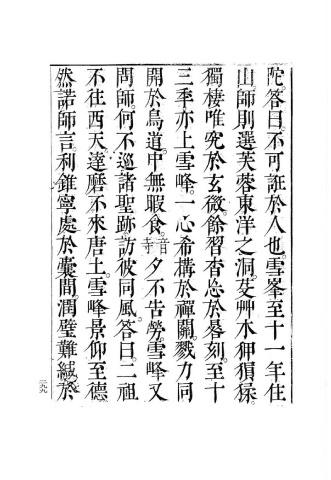 陀。答曰。不可誑於人也。雪峯至十一年住
山。師則選芙蓉東洋之洞。芟艸木狎猿猱。
獨棲唯究於玄微。餘習杳忘於晷刻。至十
三季亦上雪峰。一心希搆於禪關。戮力同
開於鳥道。中無暇食。音寺夕不告勞。雪峰又
問師。何不巡諸聖跡訪彼同風。答曰。二祖
不往西天。達磨不來唐土。雪峰景仰至德
然諾師言。利錐寧處於囊間。潤璧難緘於
二九九